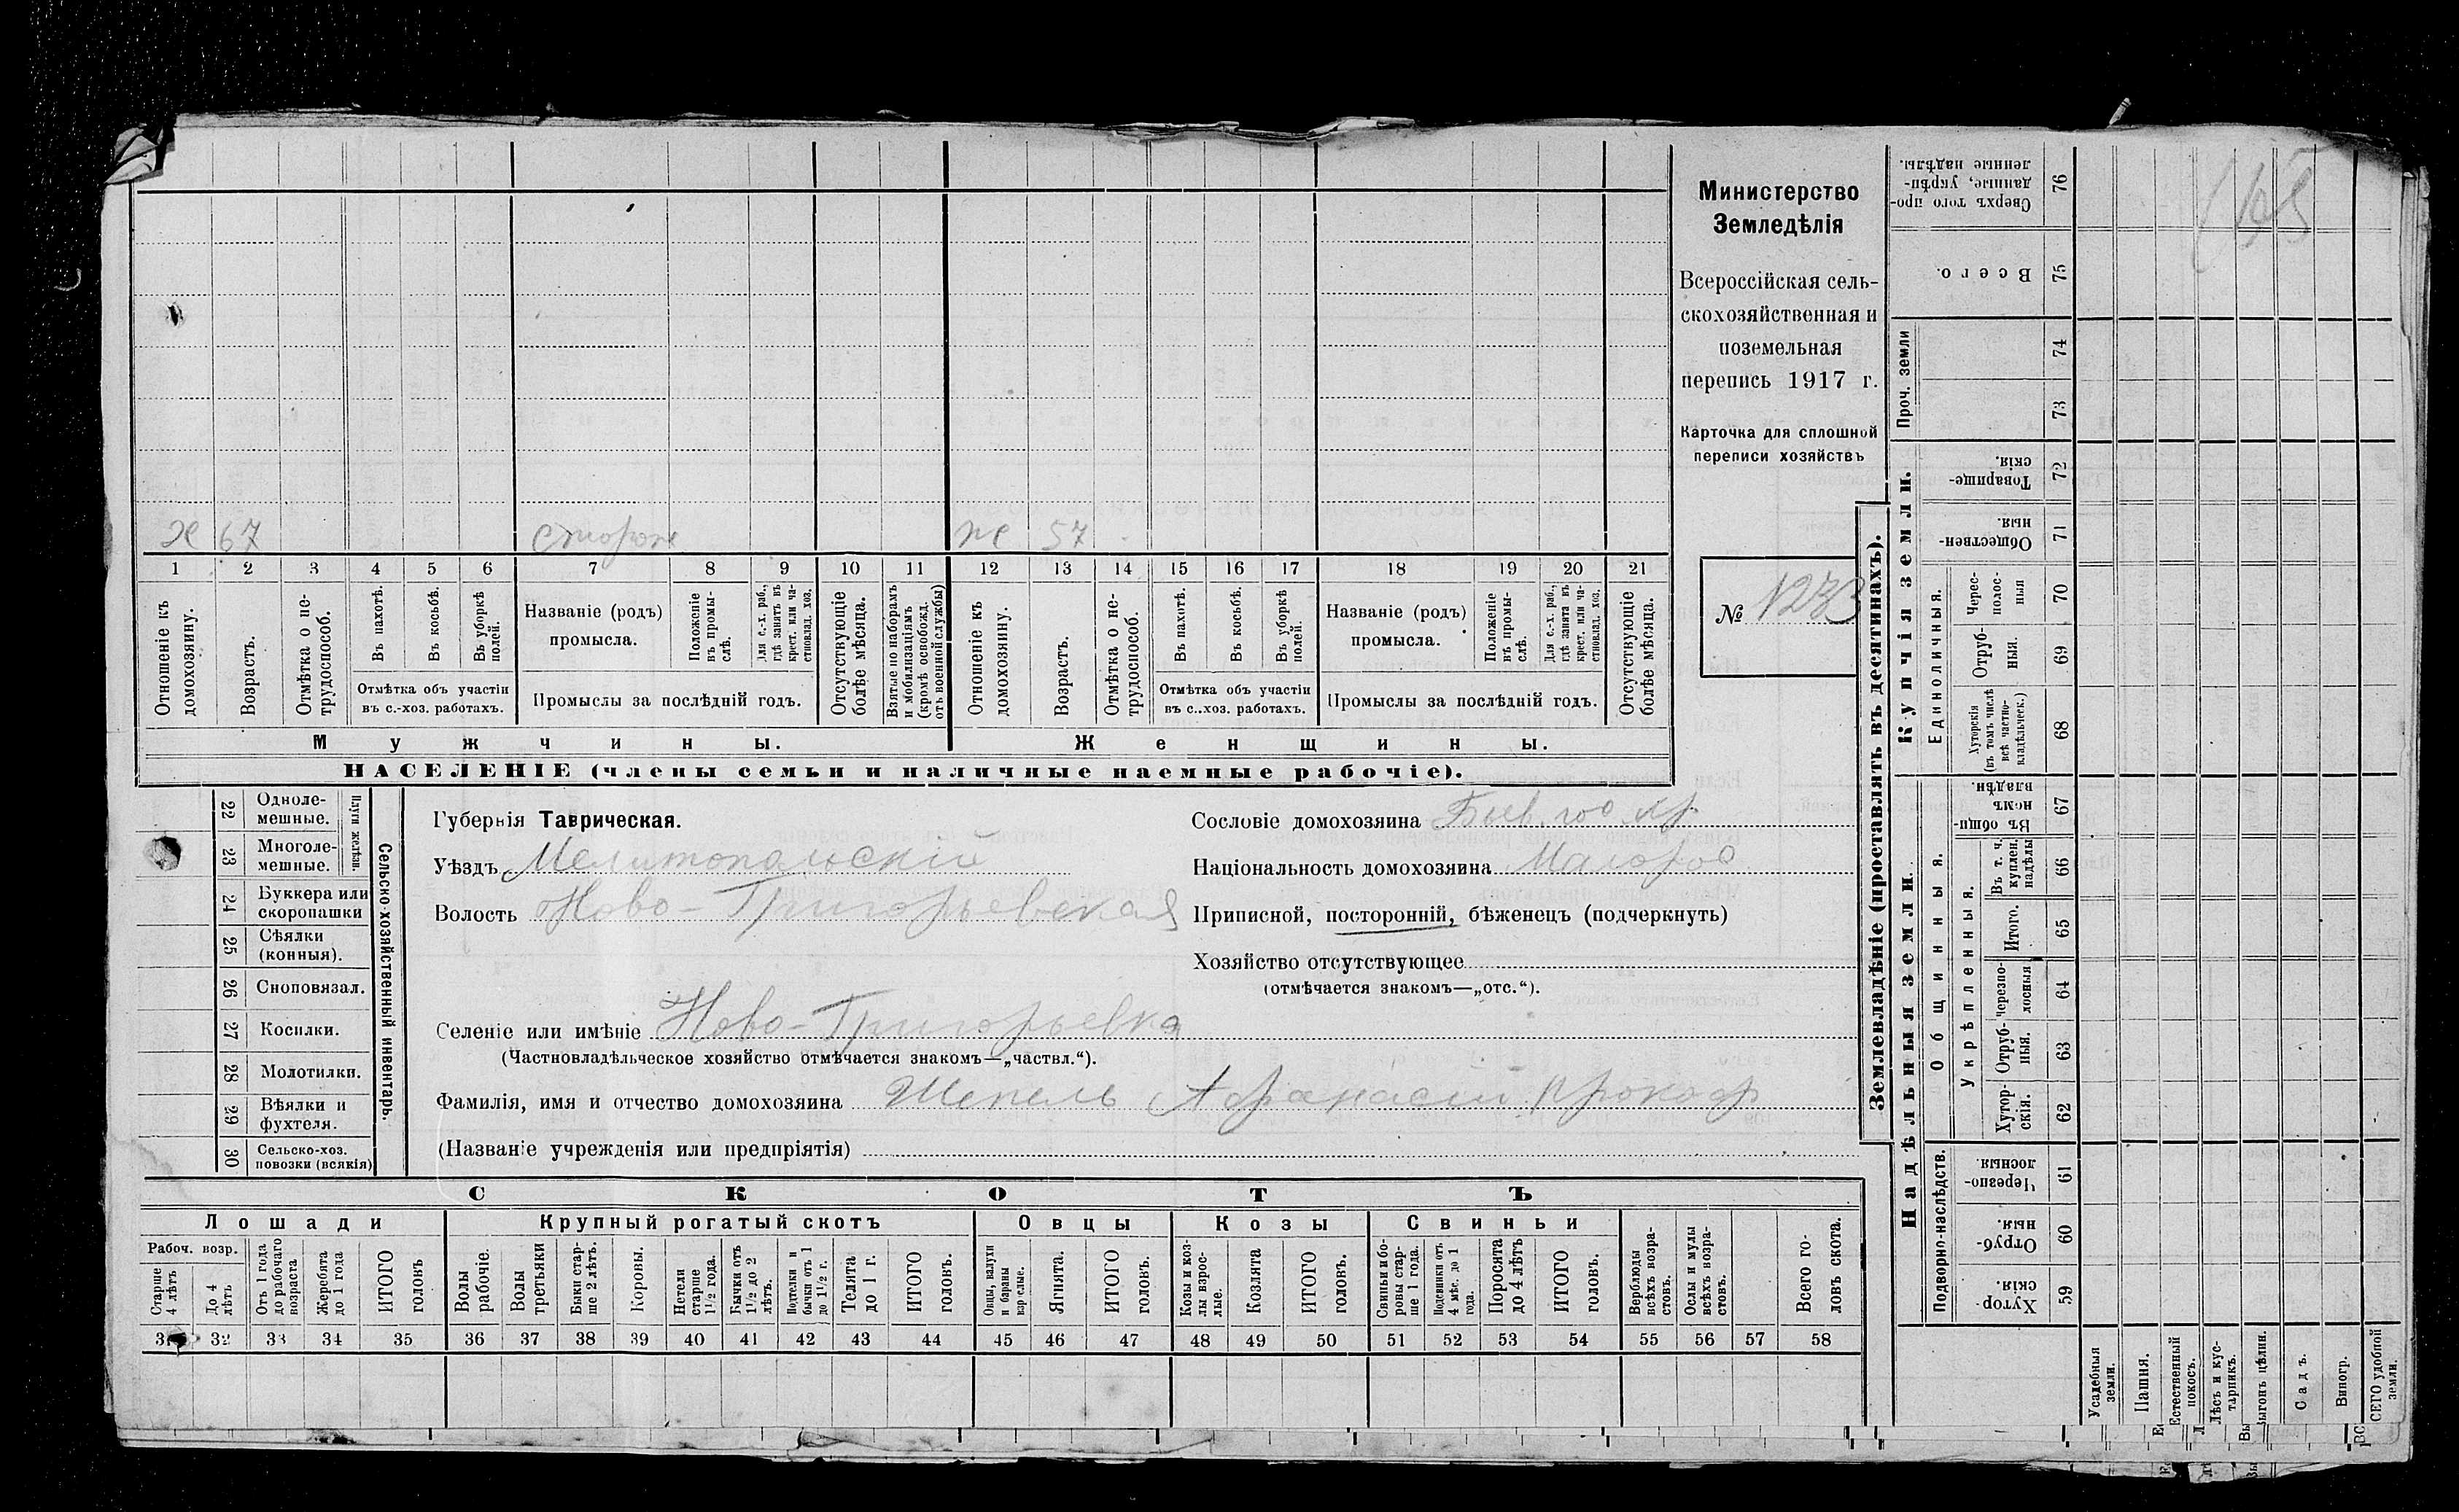 Министерство
Земледѣлія
Всероссійская сель-
скохозяйственная и
поземельная
перепись 1917 г.
Карточка для сплошной
переписи хозяйствъ
№ 1233
х 67 сторож ж 57
1 2 3 4 5 6 7 8 9 10 11 12 13 14 15 16 17 18 19 20 21
Отношеніе къ домохозяину.
Возрастъ.
Отмѣтка о не-трудоспособ.
Въ пахотѣ.
Въ косьбѣ.
Въ уборкѣ полей.
Отмѣтка объ участіи
въ с.-хоз. работахъ.
Названіе (родъ)
промысла.
Положеніе въ промы-слѣ.
Для с.-х. раб., гдѣ занятъ въ крест. или ча-стновлад. хоз.
Промыслы за послѣдній годъ.
Отсутствующіе болѣе мѣсяца.
Взятые по наборамъ и мобилизаціямъ (кромѣ освобожд. отъ военной службы)
Отношеніе къ домохозяину.
Возрастъ.
Отмѣтка о не-трудоспособ.
Въ пахотѣ.
Въ косьбѣ.
Въ уборкѣ полей.
Отмѣтка объ участіи
въ с..хоз. работахъ.
Названіе (родъ)
промысла.
Положеніе въ промы-слѣ.
Для с.-х. раб., гдѣ занята въ крест. или ча-стновлад. хоз.
Промыслы за послѣдній годъ.
Отсутствующіе болѣе мѣсяца.
Мужчины. Женщины.
НАСЕЛЕНІЕ (члены семьи и наличные наемные рабочіе).
Сельско-хозяйственный инвентарь.
Плуги желѣзн.
22 Одноле-мешные.
23 Многоле-мешные.
24 Буккера или скоропашки
25 Сѣялки (конныя).
26 Сноповязал.
27 Косилки.
28 Молотилки.
29 Вѣялки и фухтеля.
30 Сельско-хоз. повозки (всякія)
Губернія Таврическая.
Уѣздъ Мелитопольскій
Волость Ново-Григорьевская
Селеніе или имѣніе Ново-Григорьевка
(Частновладѣльческое хозяйство отмѣчается знакомъ—„частвл.“).
Фамилія, имя и отчество домохозяина Шепель Афанасій Прокоф
(Названіе учрежденія или предпріятія)
Сословіе домохозяина Быв. гос кр
Національность домохозяина Малорос
Приписной, посторонній, бѣженецъ (подчеркнуть)
Хозяйство отсутствующее
(отмѣчается знакомъ—„отс.“).
СКОТЪ
Лошади Крупный рогатый скотъ Овцы Козы Свиньи
Рабоч. возр.
Старше 4 лѣтъ
До 4 лѣтъ
Отъ 1 года до рабочаго возраста
Жеребята до 1 года
ИТОГО головъ
Волы рабочіе.
Волы третьяки
Быки стар-ше 2 лѣтъ.
Коровы.
Нетели старше 1 1/2 года.
Бычки отъ 1 1/2 до 2 лѣтъ.
Подтелки и бычки отъ 1 до 1 1/2 г.
Телята до 1 г.
ИТОГО головъ.
Овцы, валухи и бараны взрослые.
Ягнята.
ИТОГО головъ.
Козы и коз-лы взрос-лые.
Козлята
ИТОГО головъ.
Свиньи и бо-ровы стар-ше 1 года.
Подсвинки отъ 4 мѣс. до 1 года.
Поросята до 4 лѣтъ
ИТОГО головъ.
Верблюды всѣхъ возра-стовъ.
Ослы и мулы всѣхъ возра-стовъ.
Всего го-ловъ скота.
31 32 33 34 35 36 37 38 39 40 41 42 43 44 45 46 47 48 49 50 51 52 53 54 55 56 57 58
Землевладѣніе (проставлять въ десятинахъ).
Купчія земли.
Проч. земли
Единоличныя.
76 Сверхъ того про-данные, укрѣп-ленные надѣлы.
75 Всего.
74
73
72 Товарище-скія.
71 Обществен-ныя.
70 Черес-полос-ныя
69 Отруб-ныя.
68 Хуторскія (въ томъ числѣ всѣ частно-владѣльческ.)
Надѣльныя земли.
Общинныя.
Укрѣпленныя.
67 Въ общи-номъ владѣн.
66 Въ т. ч. куплен. надѣлы
65 Итого.
64 Черезпо-лосныя
63 Отруб-ныя.
62 Хутор-скія.
Подворно-наслѣдств.
61 Черезпо-лосныя.
60 Отруб-ныя.
59 Хутор-скія.
Усадебныя земли.
Пашня.
Естественный покосъ.
Лѣсъ и кус-тарникъ.
Выгонъ цѣлин.
Садъ.
Виногр.
ВСЕГО удобной земли.